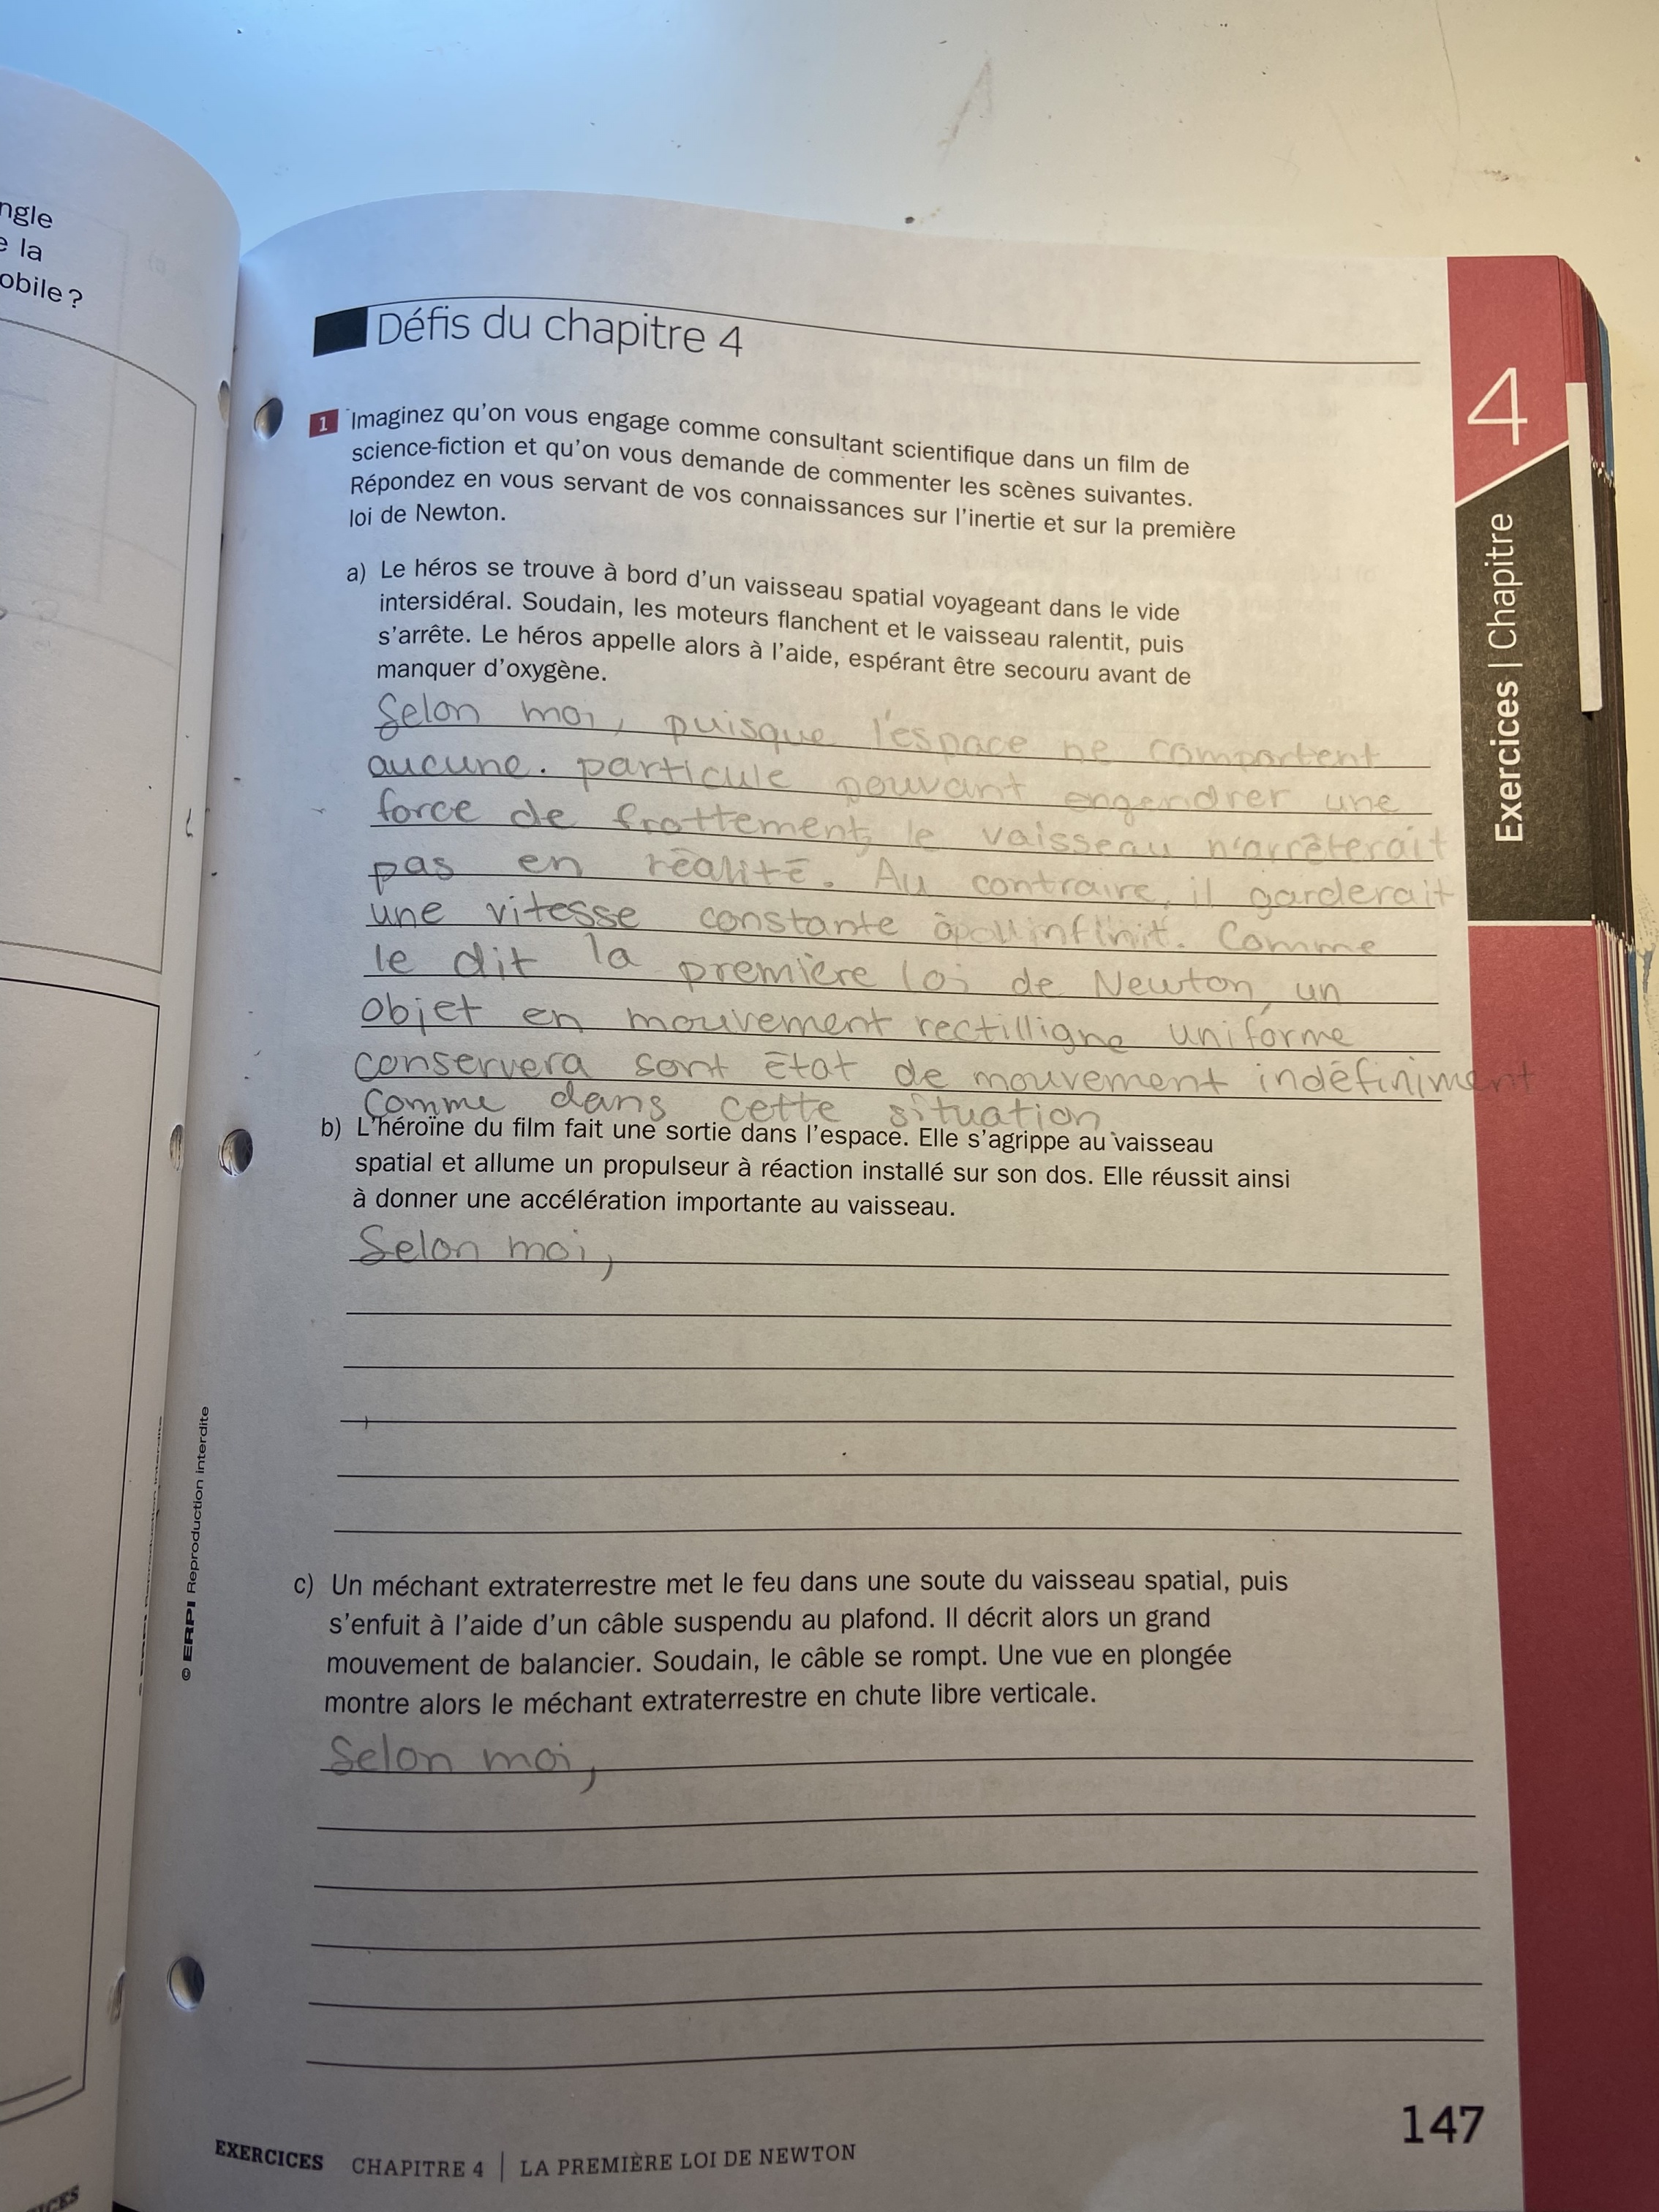 ngle
e la
obile ?
Défis du chapitre 4
1 Imaginez qu'on vous engage comme consultant scientifique dans un film de
science-fiction et qu'on vous demande de commenter les scènes suivantes.
Répondez en vous servant de vos connaissances sur l'inertie et sur la première
loi de Newton.
a) Le héros se trouve à bord d'un vaisseau spatial voyageant dans le vide
intersidéral. Soudain, les moteurs flanchent et le vaisseau ralentit, puis
s'arrête. Le héros appelle alors à l'aide, espérant être secouru avant de
manquer d'oxygène.
Selon moi, puisque l'espace ne comportent
aucune. particule pouvant engendrer une
force de frottement, le vaisseau n'arrêterait
pas en réalité. Au contraire, il garderait
une vitesse constante infinit. Comme
le dit la première loi de Newton, un
objet en mouvement rectilligne uniforme
conservera sont état de mouvement indéfiniment
comme dans cette situation.
b) L'héroïne du film fait une sortie dans l'espace. Elle s'agrippe au vaisseau
spatial et allume un propulseur à réaction installé sur son dos. Elle réussit ainsi
à donner une accélération importante au vaisseau.
Selon moi,
c) Un méchant extraterrestre met le feu dans une soute du vaisseau spatial, puis
s'enfuit à l'aide d'un câble suspendu au plafond. Il décrit alors un grand
mouvement de balancier. Soudain, le câble se rompt. Une vue en plongée
montre alors le méchant extraterrestre en chute libre verticale.
Selon moi,
© ERPI Reproduction interdite
4
Exercices | Chapitre
147
EXERCICES CHAPITRE 4 | LA PREMIÈRE LOI DE NEWTON